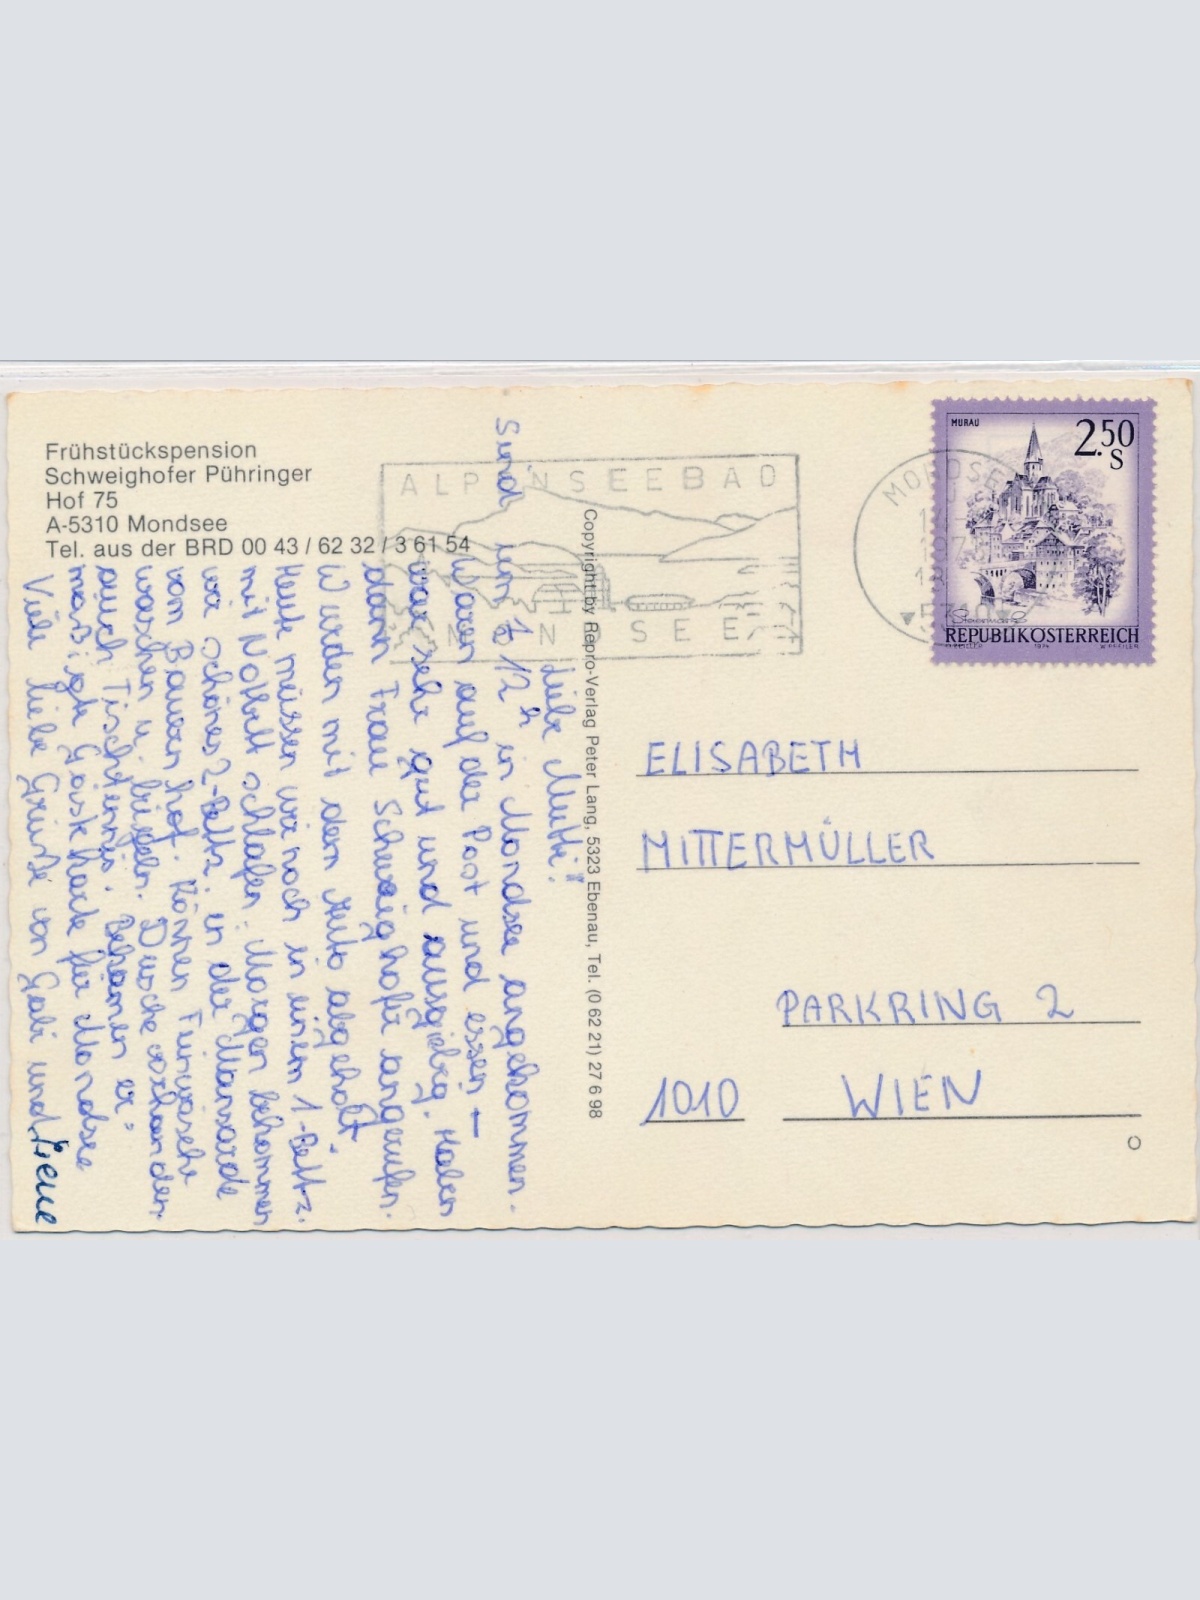 Frühstückspension
Schweighofer Pühringer
Hof 75
A-5310 Mondsee
Tel. aus der BRD 00 43 / 62 32 / 3 61 54
Liebe Mutti!
Sind um 1/2 h in Mondsee angekommen.
Waren auf der Post und essen –
war sehr gut und ausgiebig. Haben
dann Frau Schweighofer angerufen.
Wurden mit dem Auto abgeholt.
Heute müssen wir noch in einem 1-Bettz.
mit Notbett schlafen. Morgen bekommen
wir schönes 2-Bettz. in der Mansarde
vom Bauernhof. Können Feinwäsche
waschen u. bügeln. Dusche vorhanden.
auch Tischtennis. Bekamen er=
mäßigte Gästekarte für Mondsee
Viele liebe Grüße von Gabi und
Copyright by Repro-Verlag Peter Lang, 5323 Ebenau, Tel. (0 62 21) 27 6 98
ALPENSEEBAD
MONDSEE
MONDSEE
MURAU
2.50
S
Steiermark
REPUBLIK ÖSTERREICH
1974
W. PFEILER
ELISABETH
MITTERMÜLLER
PARKRING 2
1010 WIEN